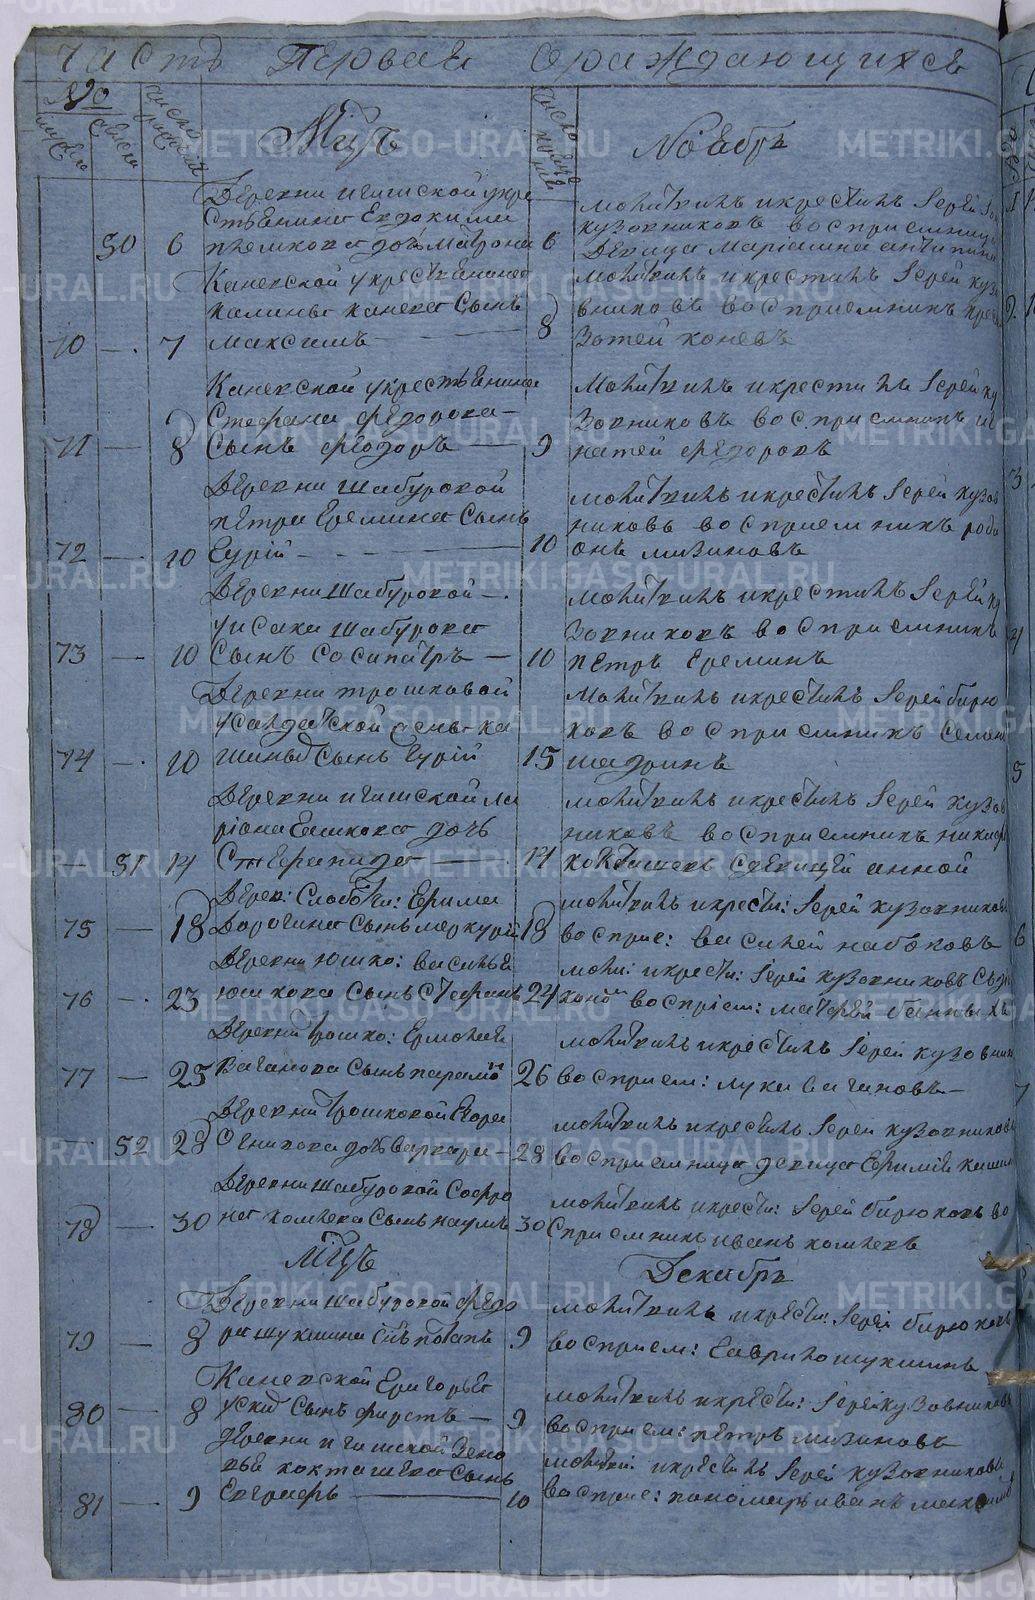 Часть Первая ораждающихся
No
мужеска
женска
число рождения
Мцъ
число крещения
Ноябрь
Деревни Игишской укре
стьянина Евдокима
50 6 Пьемкова дочь Матрона 6
молитвилъ икрестилъ Iерей
кузовниковъ восприемница
девица Марiамна антипина
Каневской укрестьянина
калины канева Сынъ
70 — 7 максимъ — 8
молитвилъ икрестилъ Iерей кузо
вниковъ восприемникъ
Зотей коневъ
Каневской укрестьянина
Стефана федорова —
71 — 8 Сынъ федоръ — 9
молитвилъ икрестилъ Iерей ку
зовниковъ восприемникъ иг
натей федоровъ
Деревни шабуровой
петра Еремина Сынъ
72 — 10 Гурiй — 10
молитвилъ икрестилъ Iерей кузов
никовъ восприемникъ роди
онъ мизиновъ
Деревни шабуровой —
уисака шабурова
73 — 10 Сынъ Сосипатръ — 10
молитвилъ икрестилъ Iерей ку
зовниковъ восприемникъ
петръ Ереминъ
Деревни трошковой
усалдатской
74 — 10 Сынъ Гурiй 15
молитвилъ икрестилъ Iерей бирю
ковъ восприемникъ Семенъ
шадринъ
Деревни Игишской ла
рiона Ешкова дочь
— 51 14 Стефанида — 14
молитвилъ икрестилъ Iерей кузов
никовъ восприемникъ никифор
кокташевъ Сдевицей анной
Дерев: Слободчи: Ефима
75 — 18 Дорогина Сынъ меркурiй 18
молитвилъ икрести: Iерей кузовниковъ
восприе: василей набоковъ
Деревни юшко: василья
76 — 23 юшкова Сынъ Стефанъ 24
моли: икрести: Iерей кузовниковъ Сдья
кономъ восприем: матфей банныхъ
Деревни трошко: Ермолая
77 — 25 Ваганова Сынъ парамонъ 26
молитвилъ икрестилъ Iерей кузовник
восприем: лука вагановъ —
Деревни трошковой Егора
— 52 28 Овчинкова дочь варвара — 28
молитвилъ икрестилъ Iерей кузовниковъ
восприемница девица Ефимiя
Деревни шабуровой Софро
78 — 30 на комлева Сынъ наумъ 30
молитвилъ икрести: Iерей бирюковъ во
сприемникъ иванъ комлевъ
Мцъ
Декабрь
Деревни шабуровой федо
79 — 8 ра шукшина Снъ потапъ 9
молитвилъ икрести: Iерей бирюковъ
восприем: Гаврило шукшинъ
Каневской Григорья
80 — 8 Сынъ фирсъ — 9
молитвилъ икрести: Iерей кузовниковъ
восприем: петръ мизиновъ
деревни игишской Зено
вья кокташева Сынъ
81 — 9 Евграфъ — 10
молитвилъ икрестилъ Iерей кузовниковъ
восприе: пономарь иванъ